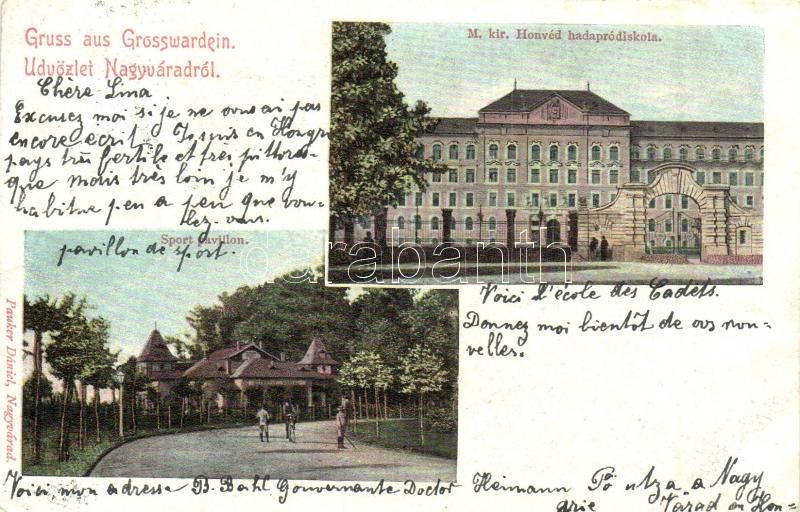 Gruss aus Grosswardein.
Üdvözlet Nagyváradról.
M. kir. Honvéd hadapródiskola.
Chère Lina
Excusez moi si je ne vous ai pas
encore ecrit. Je suis en Hongr
pays très fertile et très pittores-
que mais très loin je m'y
habitue peu a peu que vou-
lez-vous.
Sport pavillon.
pavillon de sport.
darabanth
Voici l'école des Cadets.
Donnez moi bientôt de vos nou-
velles.
Pauker Dániel, Nagyvárad.
Voici mon adresse B. Gouvernante Doctor Heimann Fö utza a Nagy
Várad en Hon-
grie